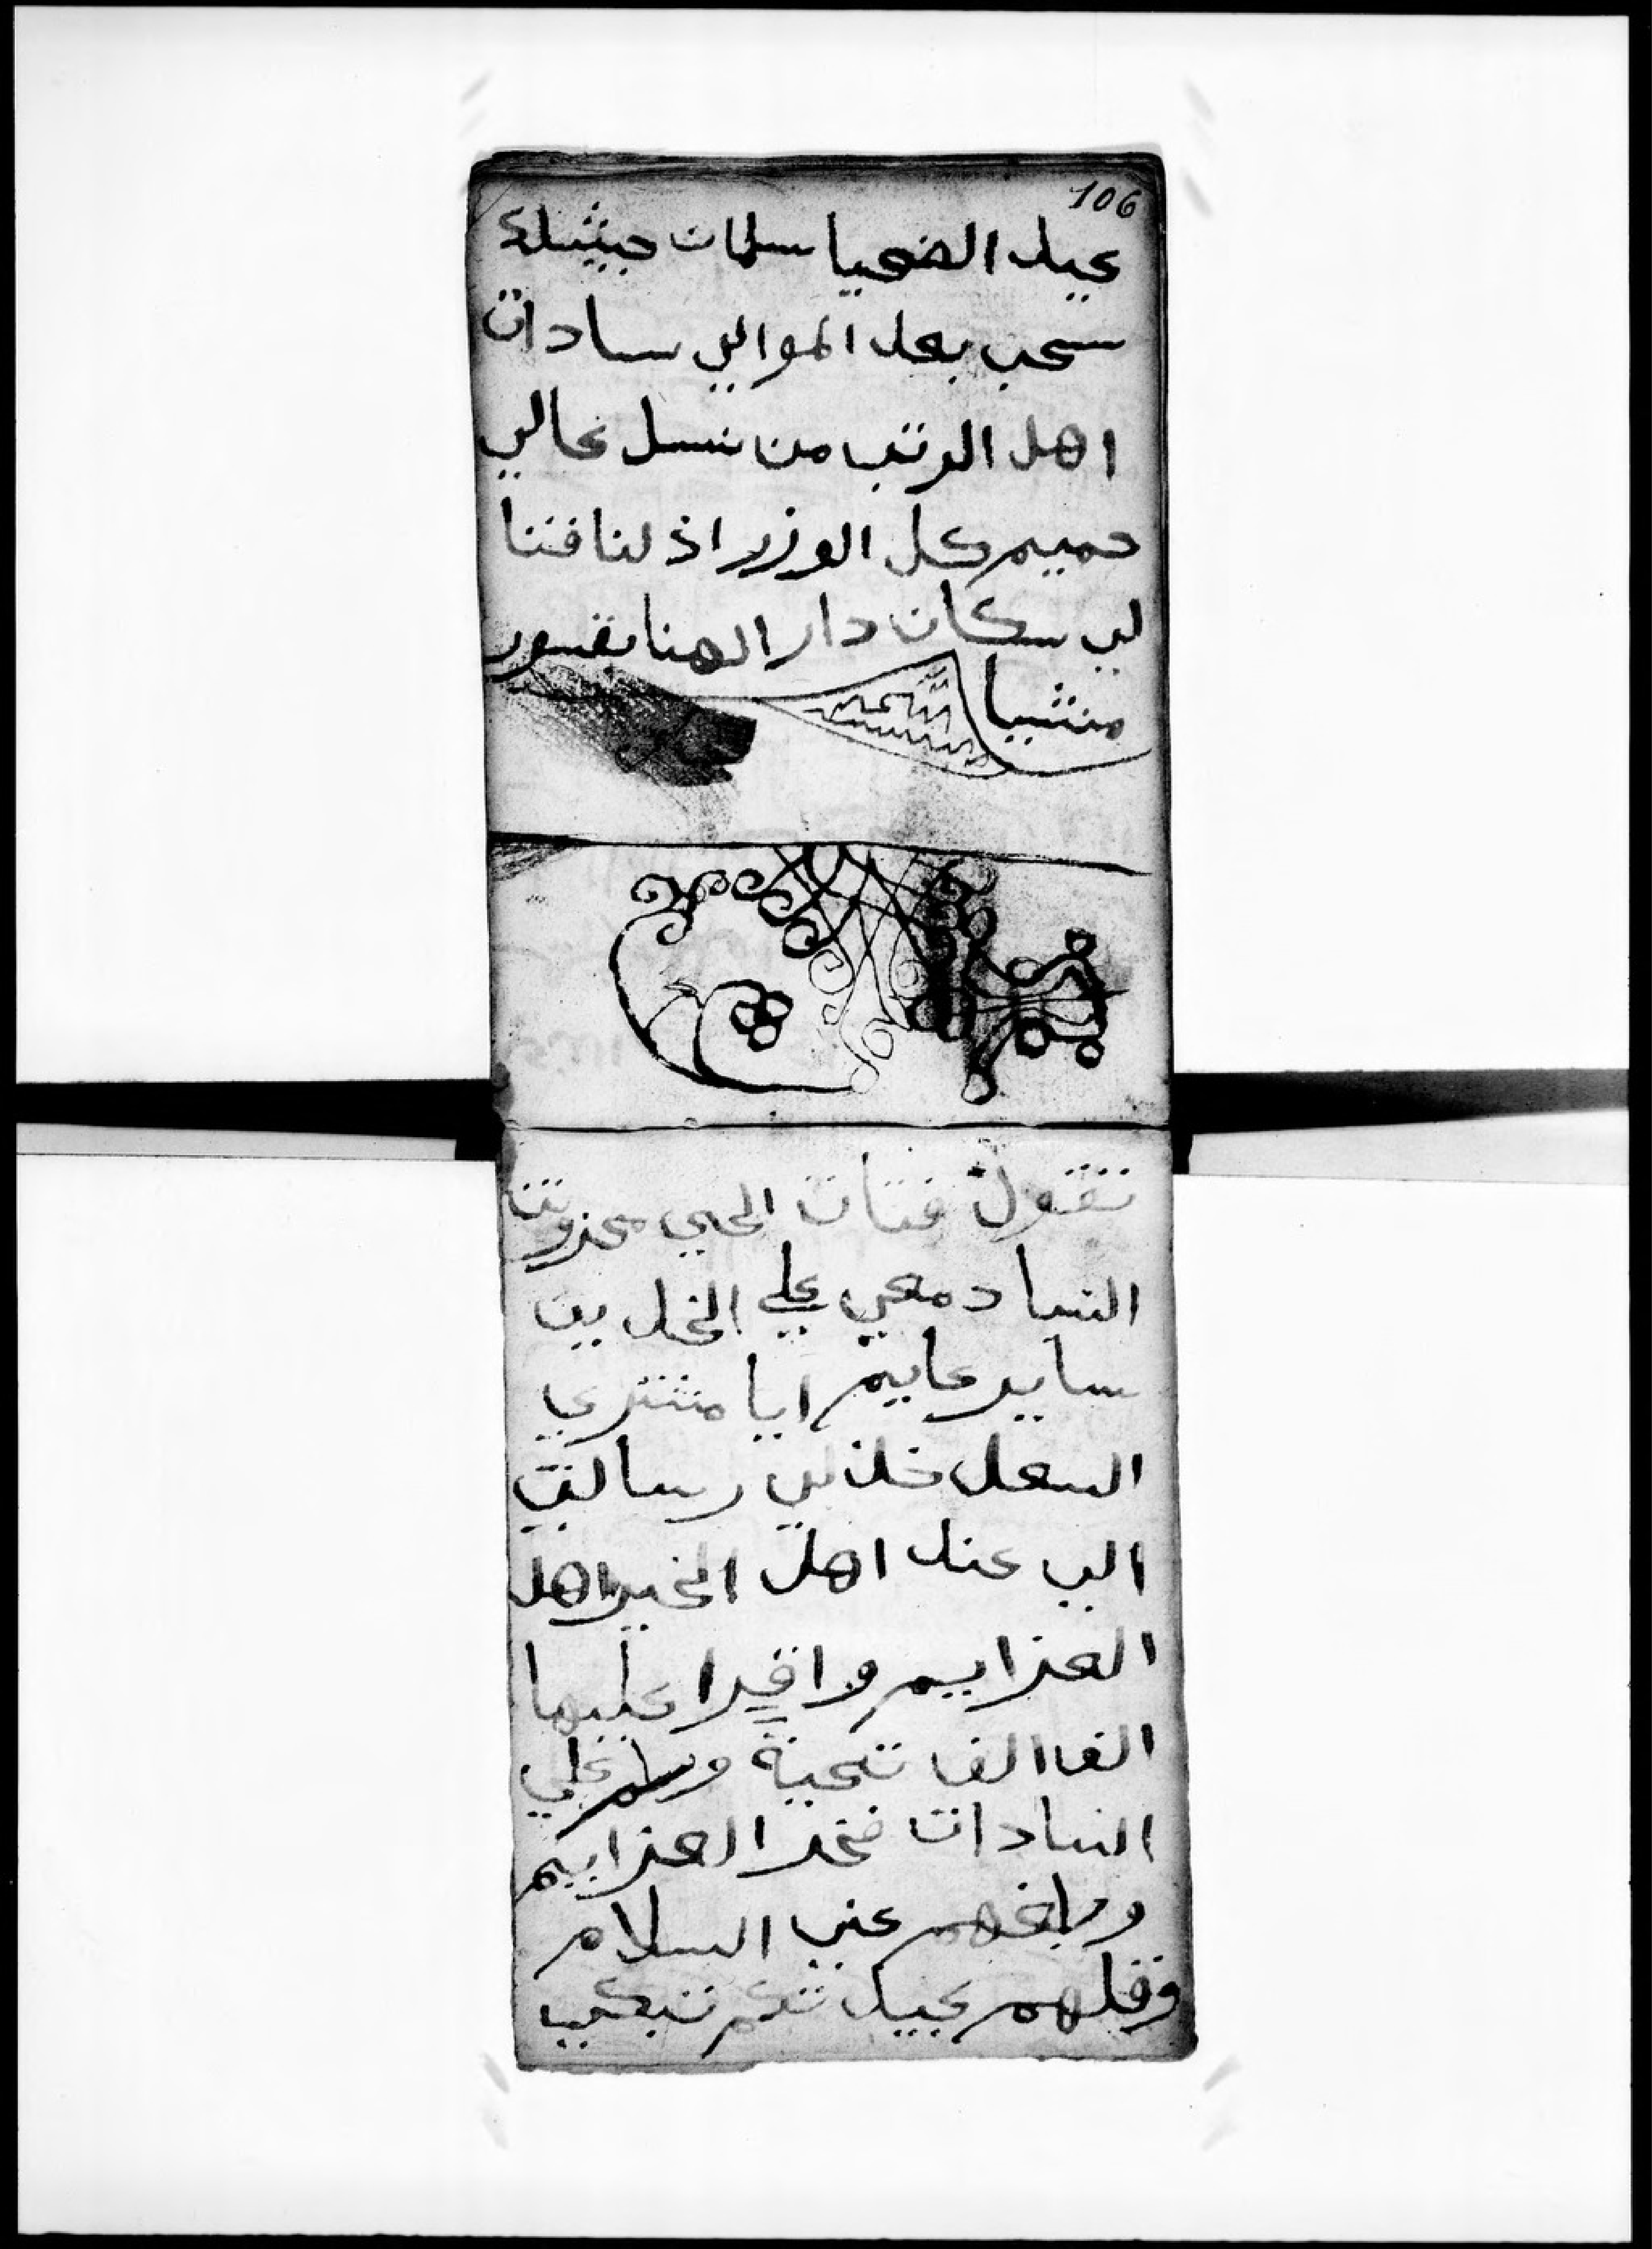 106
عيد الضحيا سلمان جيشك
سحب بعد الموالي سادات
اهل الرتب من نسل عالي
حميم كل الوزر اذ لنا فتنا
لي سكان دار الهنا بقسور
منشيا
تقول فتات الحي محزونت
النسا دمعي علي الخد ين
ساير عايم ايا مشتري
السعد خذ لي رسالتي
الي عند اهل الخير اهل
العزايم واقرا عليها
الفا الف تحية وسلم علي
السادات فخر العزايم
وبلغهم عني السلام
وقلهم عبيد تكم تبكي